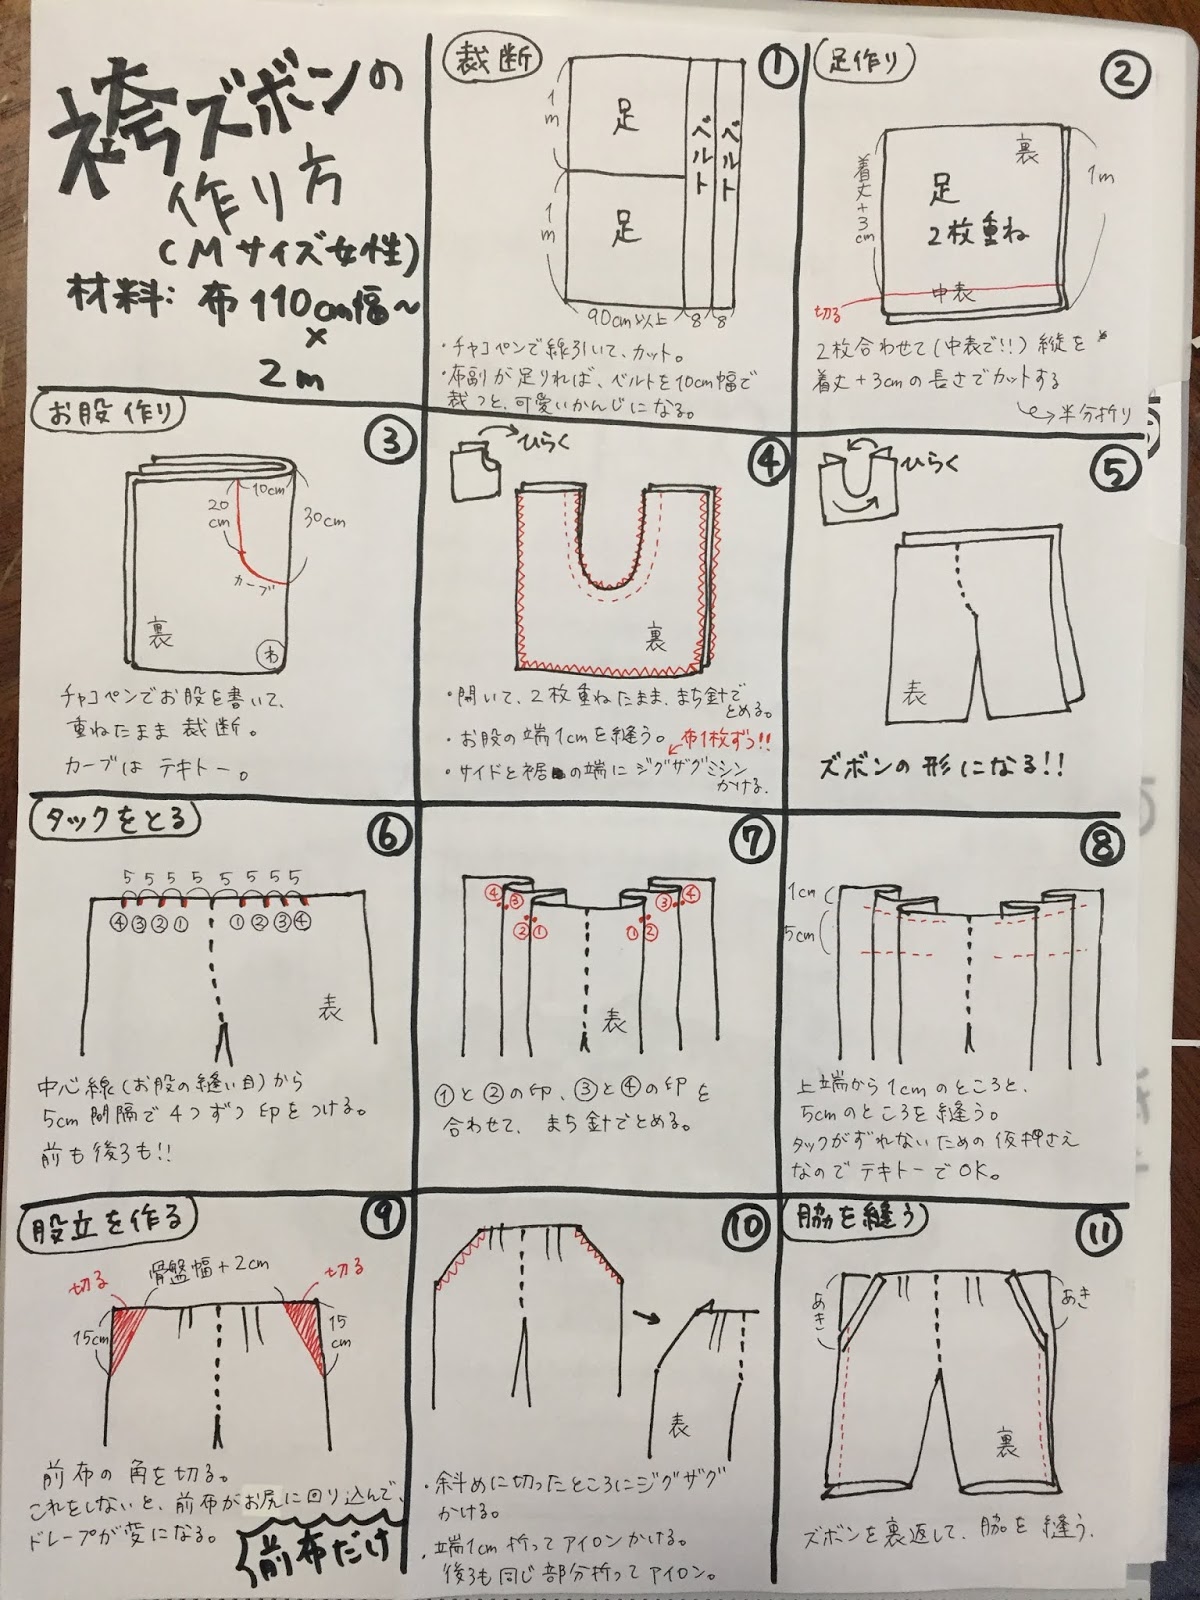 袴ズボンの
作り方
(Mサイズ女性)
材料:布110cm幅〜
×
2m
裁断
①
1m
足
ベルト
ベルト
1m
足
90cm以上
8
8
・チャコペンで線引いて、カット。
・布副が足りれば、ベルトを10cm幅で
裁つと、可愛いかんじになる。
足作り
②
裏
着丈+3cm
足
2枚重ね
1m
中表
切る
2枚合わせて(中表で!!)縦を
着丈+3cmの長さでカットする
半分折り
お股作り
③
10cm
20cm
30cm
カーブ
裏
わ
チャコペンでお股を書いて、
重ねたまま裁断。
カーブはテキトー。
④
ひらく
裏
・開いて、2枚重ねたまま、まち針で
とめる。
・お股の端1cmを縫う。
布1枚ずつ!!
・サイドと裾の端にジグザグミシン
かける。
⑤
ひらく
表
ズボンの形になる!!
タックをとる
⑥
5 5 5 5 5 5 5 5
④③②① ①②③④
表
中心線(お股の縫い目)から
5cm間隔で4つずつ印をつける。
前も後ろも!!
⑦
④③ ③④
②① ①②
表
①と②の印、③と④の印を
合わせて、まち針でとめる。
⑧
1cm
5cm
上端から1cmのところと、
5cmのところを縫う。
タックがずれないための仮押さえ
なのでテキトーでOK。
股立を作る
⑨
骨盤幅+2cm
切る
切る
15cm
15cm
前布の角を切る。
これをしないと、前布がお尻に回り込んで、
ドレープが変になる。
前布だけ
⑩
表
・斜めに切ったところにジグザグ
かける。
・端1cm折ってアイロンかける。
後ろも同じ部分折ってアイロン。
脇を縫う
⑪
あき
あき
裏
ズボンを裏返して、脇を縫う.